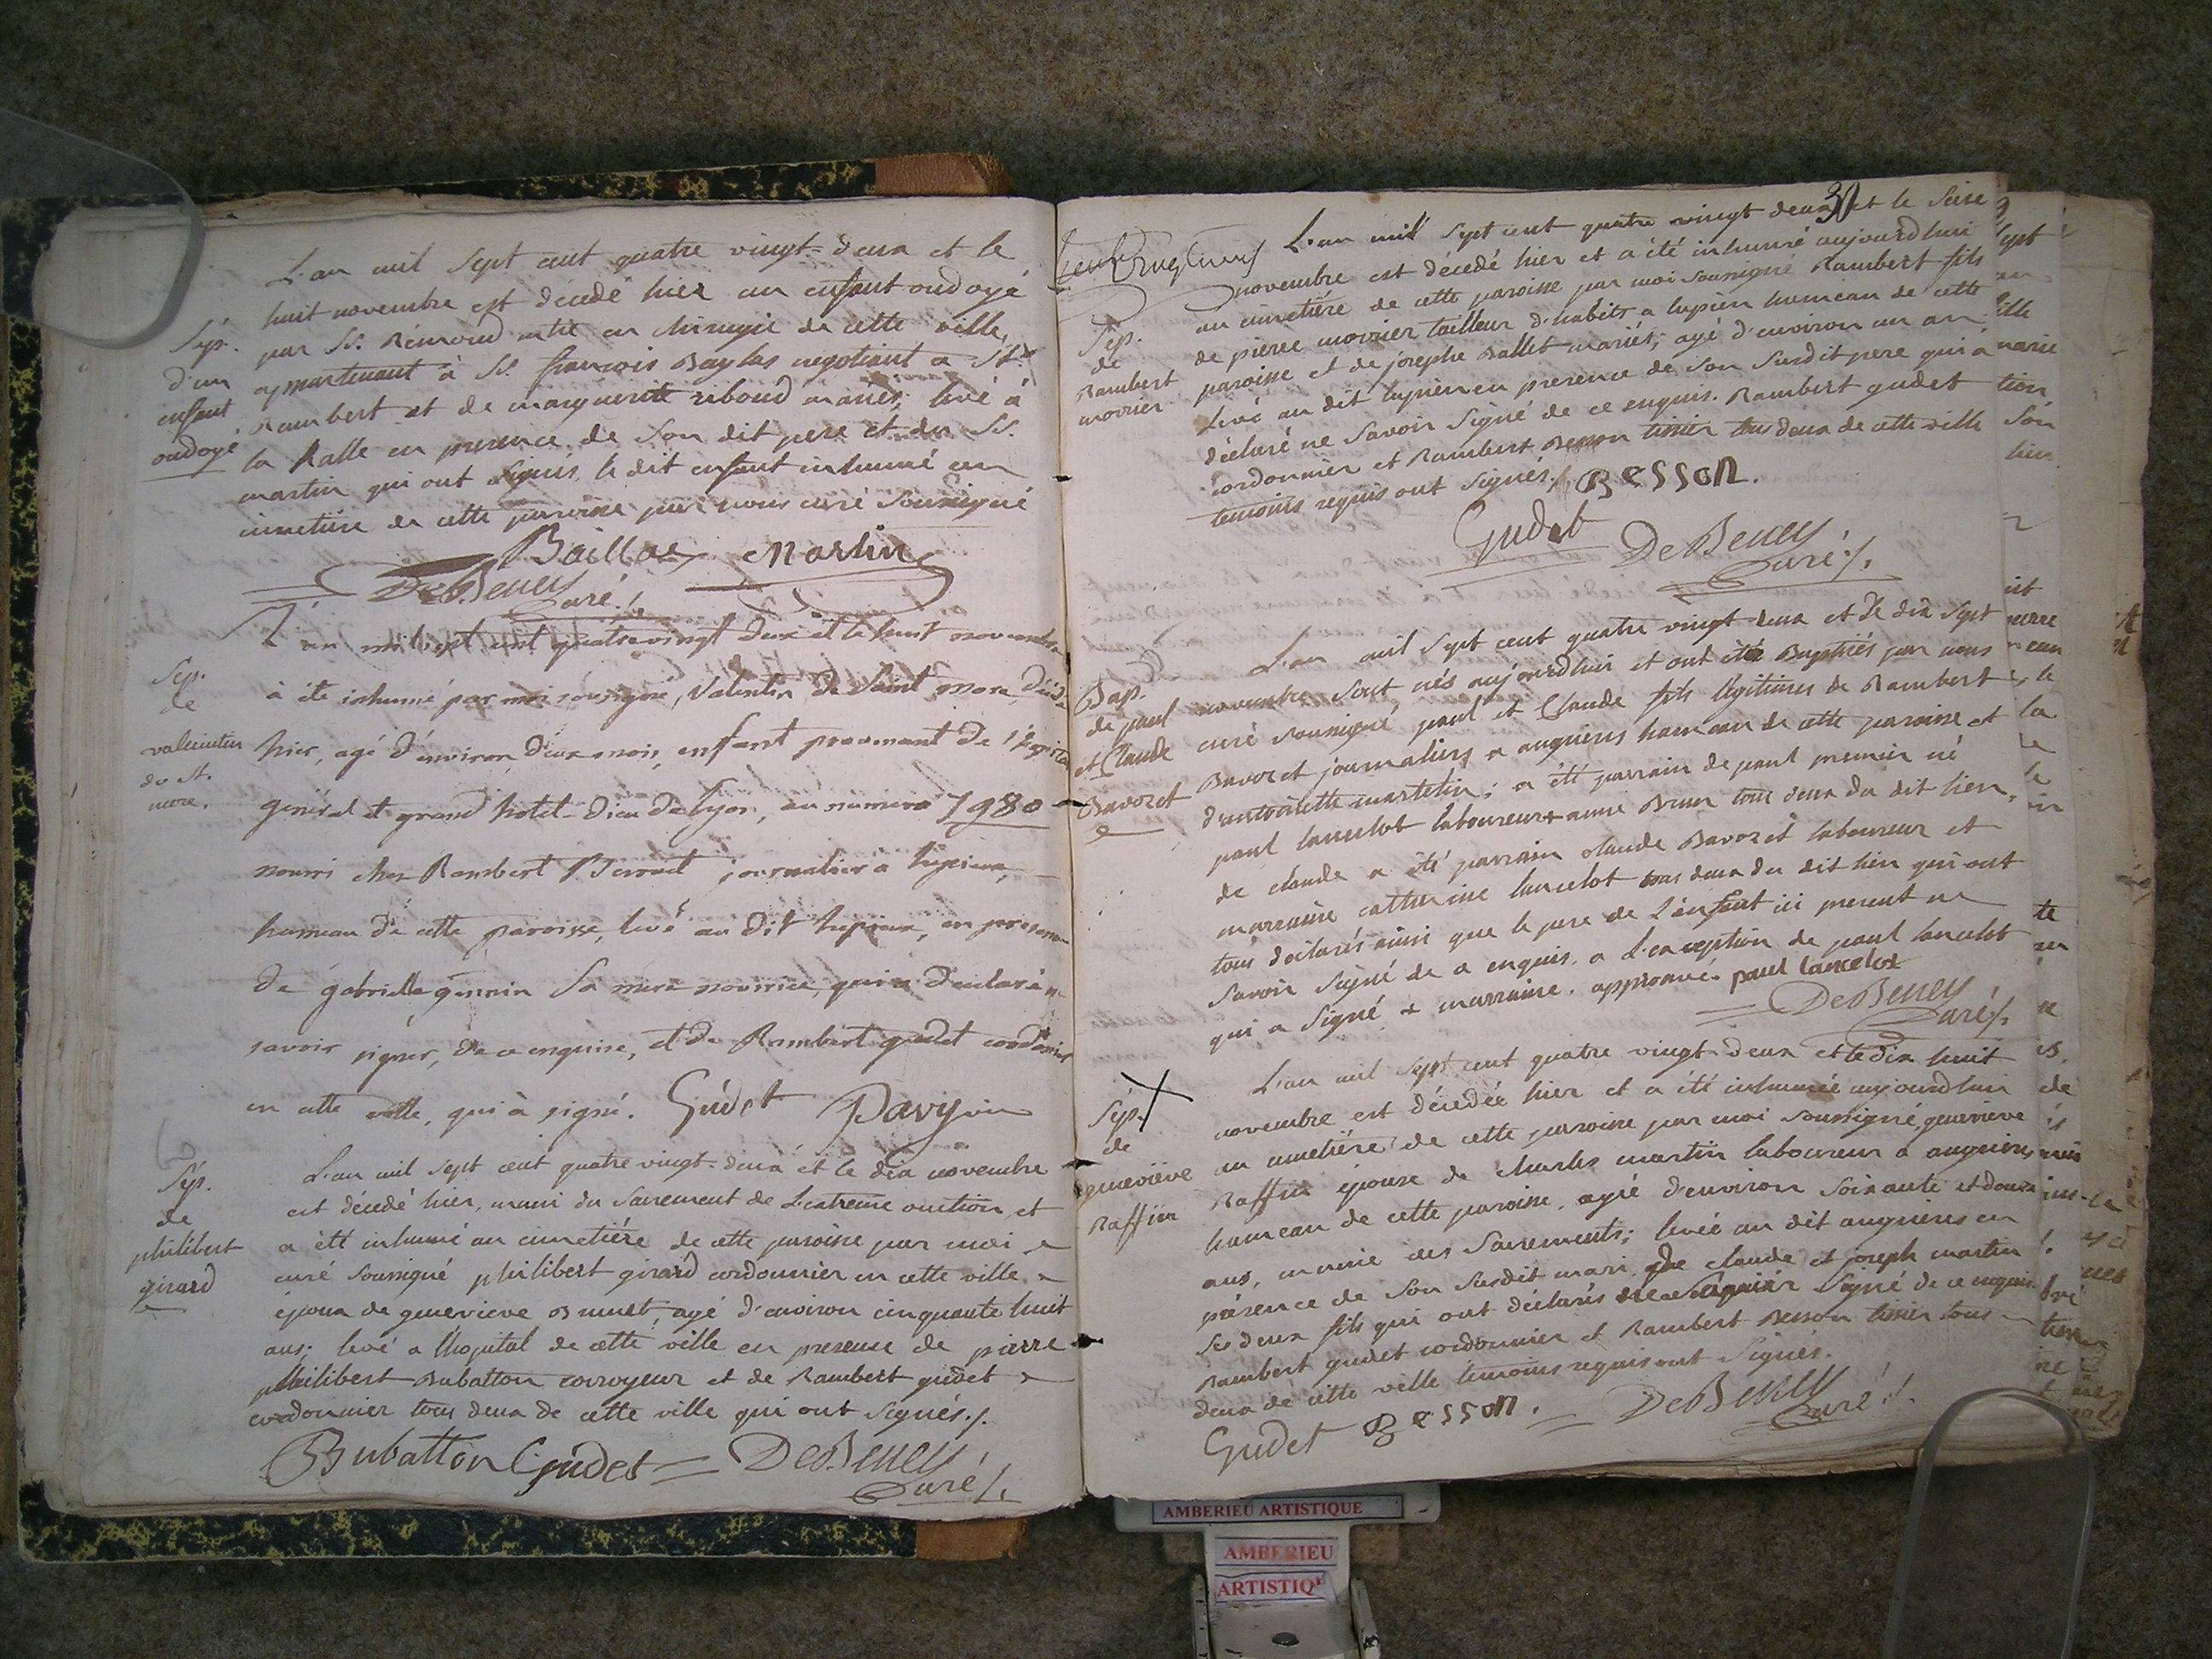 L'an mil Sept cent quatre vingt-deux et le
huit novembre est décédé hier un enfant ondoyé
par Sr. Rémond mtre en chirurgie de cette ville,
appartenant à Sr. françois Baylas negotiant a St.
Rambert et de marguerite riboud mariés, levé à
la halle en presence de Son dit pere et du Sr.
martin qui ont signés, le dit enfant inhumé au
cimetiére de cette paroisse par nous curé Soussigné
Sép.
d'un
enfant
ondoyé
Baillas Martin
DeBeney
Curé
L'an mil sept cent quatrevingt deux et le huit novembre
à été inhumé par moi soussigné, Valentin de Saint more, décédé
hier, agé d'environ deux mois, enfant provenant de l'hôpital
général et grand hotel-Dieu de Lyon, au numero 7980
nourri chez Rambert journalier à lupieu,
hameau de cette paroisse, levé au dit lupieu, en presence
de gabrielle genin Sa mere nourrice, qui a déclaré ne
savoir signer, de ce enquise, et de Rambert gudet cordonnier
en cette ville, qui à signé. Gudet Davy vic
Sep.
de
valentin
de St.
more.
L'an mil sept cent quatre vingt-deux et le dix novembre
est décédé hier, muni du Sacrement de L'extreme onction, et
a été inhumé au cimetiére de cette paroisse par moi
curé Soussigné philibert girard cordonnier en cette ville
époux de genevieve Brunet, agé d'environ cinquante huit
ans; levé a l'hopital de cette ville en presence de pierre
philibert Bubatton corroyeur et de Rambert gudet
cordonnier tous deux de cette ville qui ont signés./.
Sép.
de
philibert
girard
Bubatton Gudet DeBeney
Curé/.
30
L'an mil Sept cent quatre vingt deux et le Seise
novembre est décedé hier et a été inhumé aujourdhui
au cimetiére de cette paroisse par moi soussigné Rambert fils
de pierre movrier tailleur d'habits a lupieu hameau de cette
paroisse et de josephe Ballet mariés, agé d'environ un an
levé au dit lupieu en presence de Son Susdit pere qui a
déclaré ne Savoir Signé de ce enquis. Rambert gudet
cordonnier et Rambert Besson tissier tous deux de cette ville
temoins requis ont signés./. Besson.
Sep.
de
Rambert
movrier
Gudet DeBeney
Curé/.
L'an mil Sept cent quatre vingt-deux et le dix Sept
novembre Sont nés aujourdhui et ont été Baptisés par nous
curé soussigné paul et Claude fils légitimes de Rambert
Bavozet journaliers a angrieres hameau de cette paroisse et
d'antoinette martelin; a été parrain de paul premier né
paul lancelot laboureur + anne Brun tous deux du dit lieu,
de claude a été parrain claude Bavozet laboureur et
marraine catherine lancelot tous deux du dit lieu qui ont
tous déclarés ainsi que le pere de L'enfant ici present ne
Savoir Signé de ce enquis. a L'exception de paul lancelot
qui a Signé + marraine. approuvé. paul lancelot
DeBeney
Curé/.
Bap.
de paul
et Claude
Bavozet
L'an mil Sept cent quatre vingt-deux et le dix huit
novembre est décedée hier et a été inhumée aujourdhui
au cimetiére de cette paroisse par moi Soussigné, genevieve
Raffin épouse de charles martin laboureur a angrieres
hameau de cette paroisse, agée d'environ Soixante et douze
ans, munie des Sacrements; levée au dit angrieres en
présence de Son Susdit mari, de claude et joseph martin
Ses deux fils qui ont déclarés ne Savoir Signé de ce enquis.
Rambert gudet cordonnier et Rambert Besson tissier tous
deux de cette ville temoins requis ont Signés.
Sép.
de
genevieve
Raffin
Gudet Besson. DeBeney
Curé!.
AMBERIEU ARTISTIQUE
AMBERIEU
ARTISTIQ